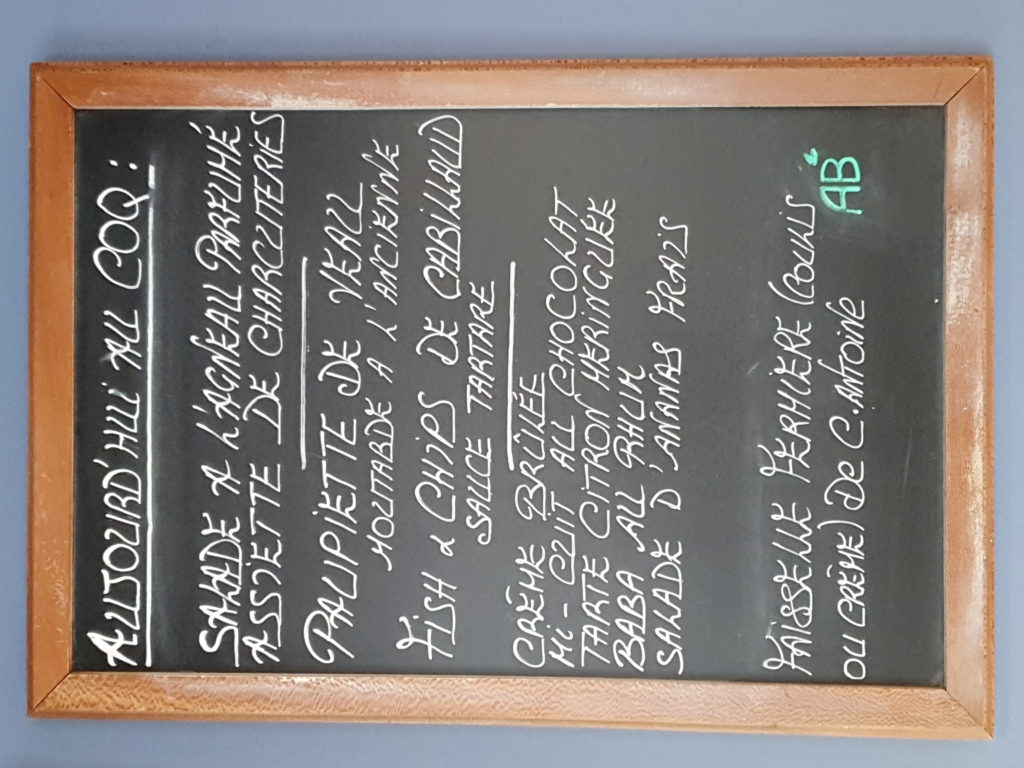 AUJOURD'HUI AU COQ :
SALADE A L'AGNEAU PARFUMÉ
ASSIETTE DE CHARCUTERIES
PAUPIETTE DE VEAU
MOUTARDE A L'ANCIENNE
FISH & CHIPS DE CABILLAUD
SAUCE TARTARE
CRÈME BRÛLÉE
MI-CUIT AU CHOCOLAT
TARTE CITRON MERINGUÉE
BABA AU RHUM
SALADE D'ANANAS FRAIS
FAISSELLE FERMIERE (COULIS
OU CRÈME) DE C. ANTOINE
AB